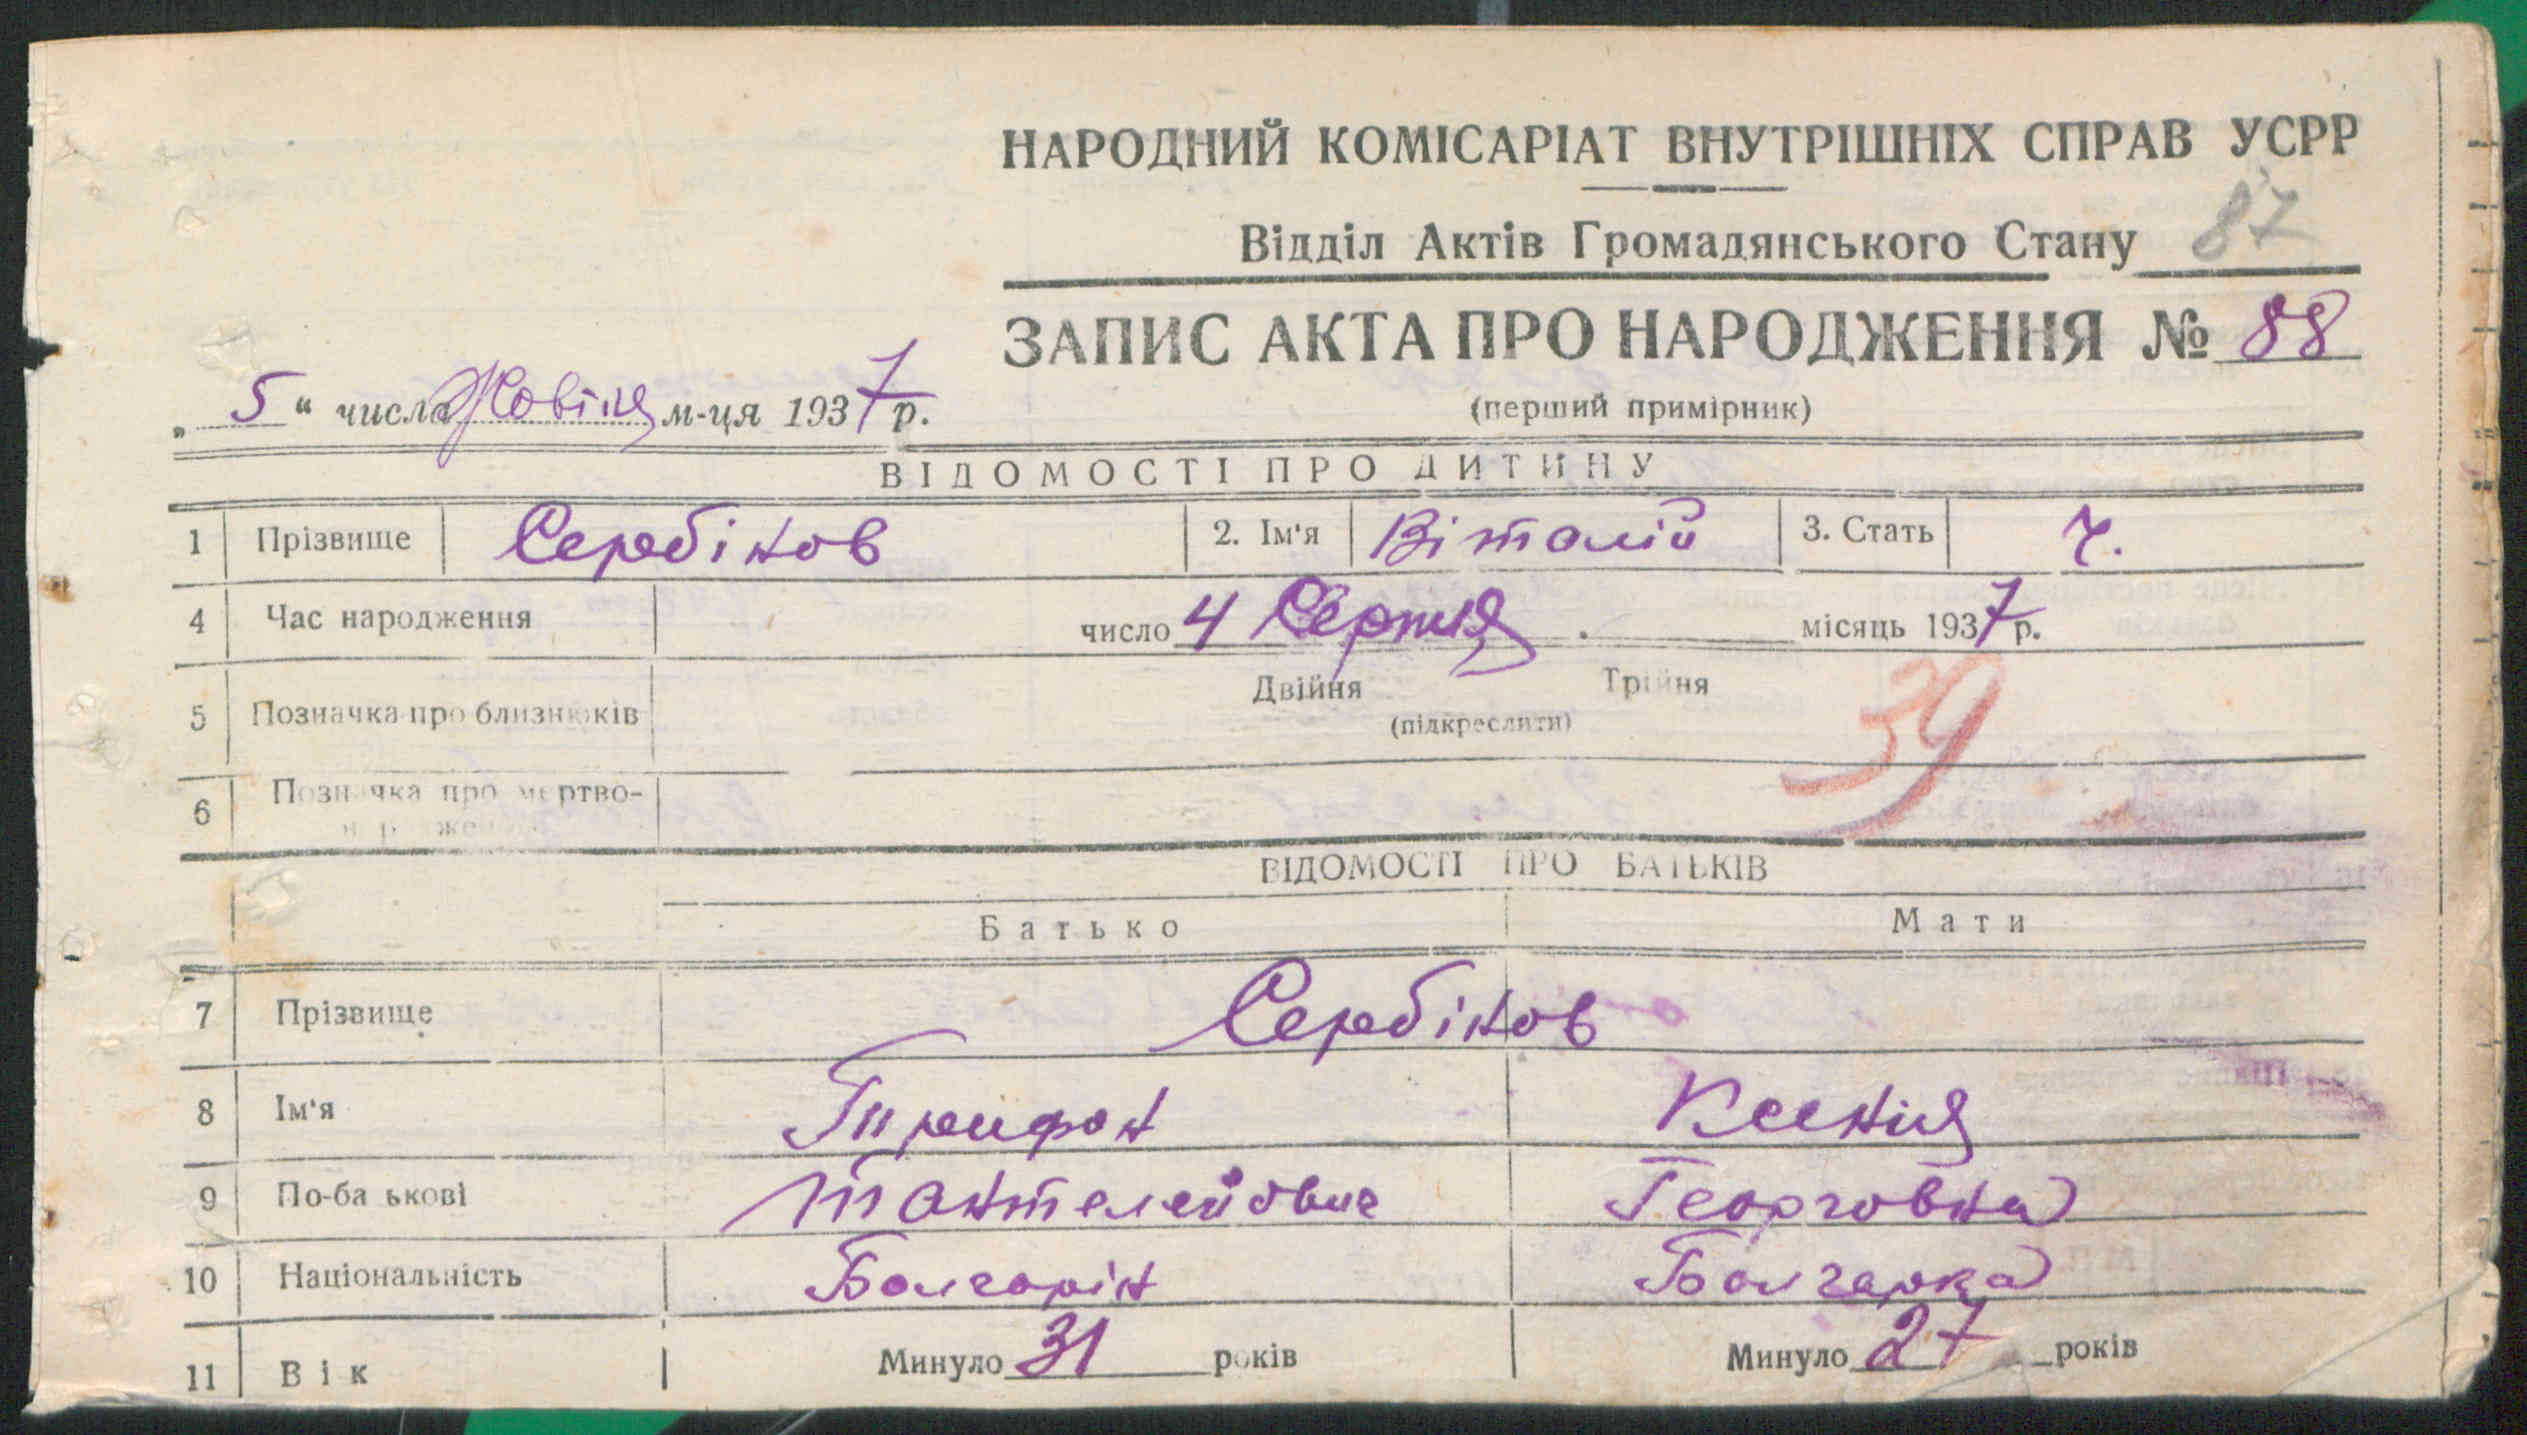 НАРОДНИЙ КОМІСАРІАТ ВНУТРІШНІХ СПРАВ УСРР
Відділ Актів Громадянського Стану 87
ЗАПИС АКТА ПРО НАРОДЖЕННЯ № 88
„ 5 “ числа Жовтня м-ця 1937 р.
(перший примірник)
ВІДОМОСТІ ПРО ДИТИНУ
1 Прізвище Сербінов 2. Ім'я Віталій 3. Стать Ч.
4 Час народження число 4 Серпня місяць 1937 р.
5 Позначка про близнюків Двійня Трійня
(підкреслити)
39
6 Позначка про мертво-
народжених
ВІДОМОСТІ ПРО БАТЬКІВ
Батько Мати
7 Прізвище Сербінов
8 Ім'я Трифон Ксенія
9 По-ба ькові Пантелейович Георговна
10 Національність Болгарін Болгарка
11 Вік Минуло 31 років Минуло 27 років